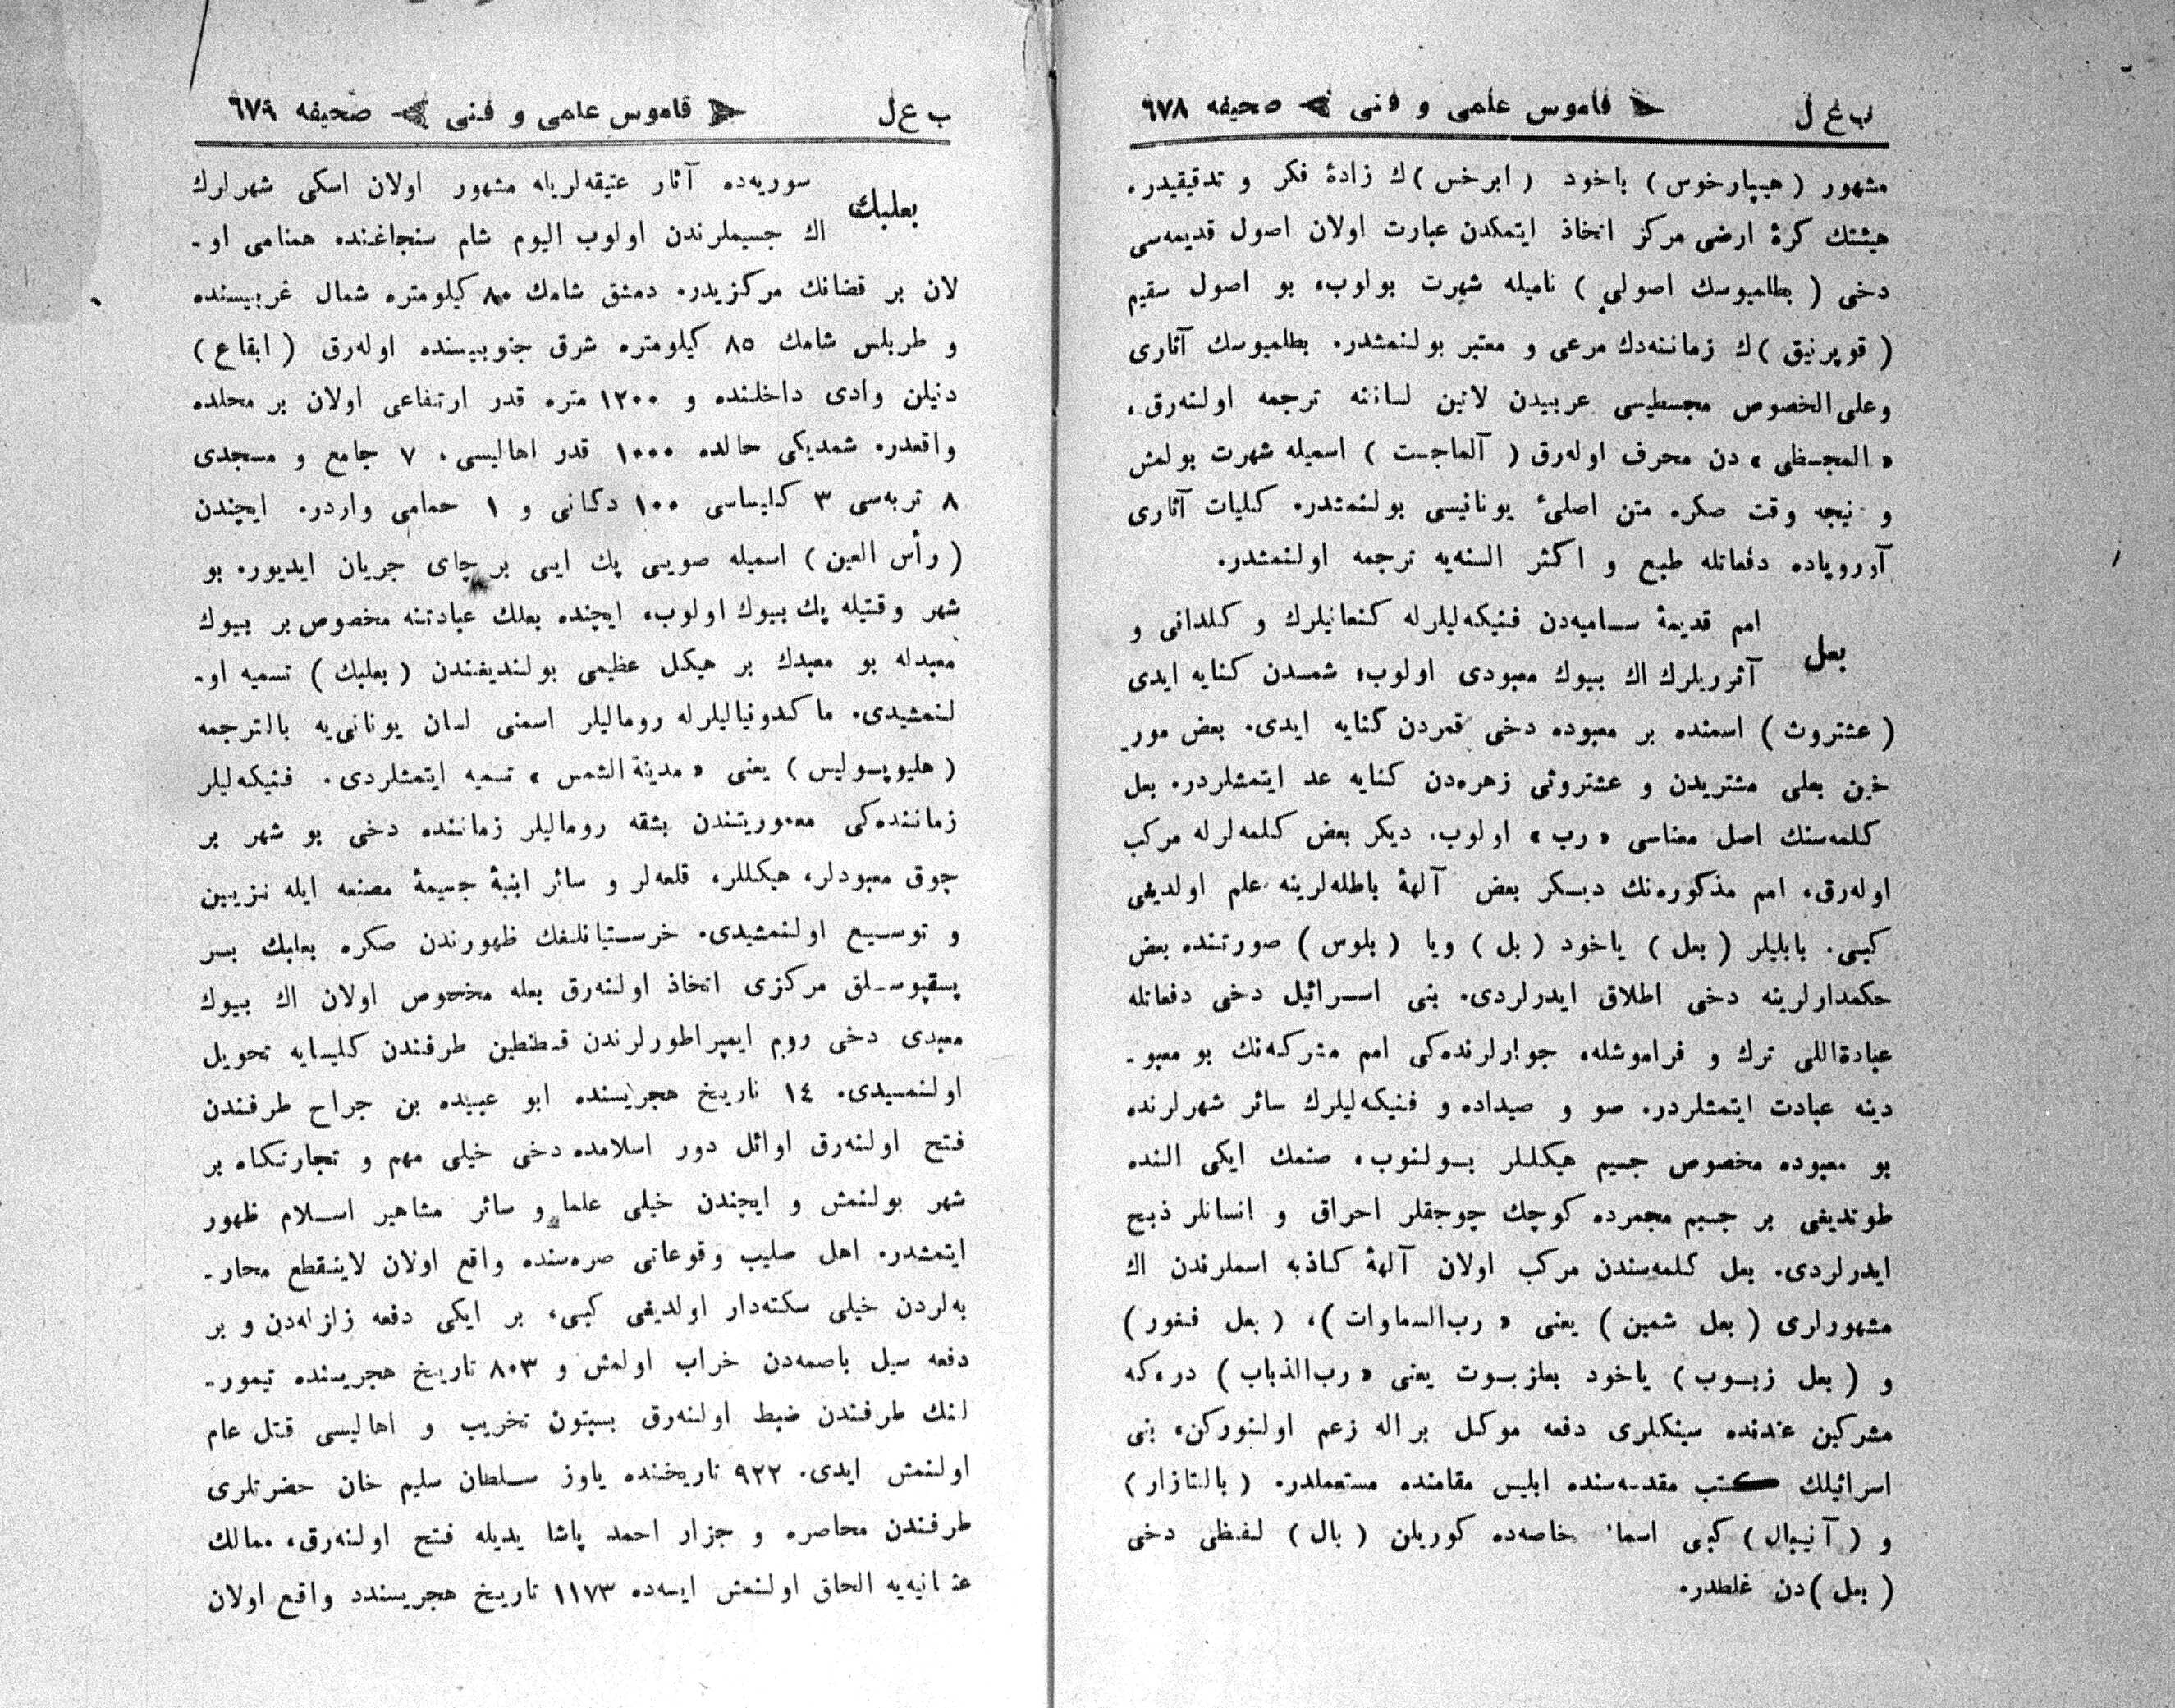 ب ع ل قاموس علمی و فنی صحیفه ٦٧٨
مشهور ( هیپارخوس ) یاخود ( ابرخس )ك زادهٔ فکر و تدقیقیدر.
هیئتك کرهٔ ارضی مرکز اتخاذ ایتمکدن عبارت اولان اصول قدیمه‌سی
دخی ( بطلمیوسك اصولی ) نامیله شهرت بولوب، بو اصول سقیم
( قوپرنیق )ك زماننه‌دك مرعی و معتبر بولنمشدر. بطلمیوسك آثاری
وعلی الخصوص مجسطیسی عربیدن لاتین لساننه ترجمه اولنه‌رق،
« المجسطی » دن محرف اوله‌رق ( آلماجست ) اسمیله شهرت بولمش
و نیجه وقت صکره متن اصلیٔ یونانیسی بولنمشدر. کلیات آثاری
آوروپاده دفعاتله طبع و اکثر السنه‌یه ترجمه اولنمشدر.
بعل امم قدیمهٔ سامیه‌دن فنیکه‌لیلرله کنعانیلرك و کلدانی و
آثوریلرك اك بیوك معبودی اولوب، شمسدن کنایه ایدی
( عشتروث ) اسمنده بر معبوده دخی قمردن کنایه ایدی. بعض مور-
خین بعلی مشتریدن و عشتروثی زهره‌دن کنایه عد ایتمشلردر. بعل
کلمه‌سنك اصل معناسی « رب » اولوب، دیکر بعض کلمه‌لرله مرکب
اوله‌رق، امم مذکوره‌نك دیکر بعض آلههٔ باطله‌لرینه علم اولدیغی
کبی. بابلیلر ( بعل ) یاخود ( بل ) ویا ( بلوس ) صورتنده بعض
حکمدارلرینه دخی اطلاق ایدرلردی. بنی اسرائیل دخی دفعاتله
عبادةاللی ترك و فراموشله، جوارلرنده‌کی امم مشرکه‌نك بو معبو-
دینه عبادت ایتمشلردر. صو و صیداده و فنیکه‌لیلرك سائر شهرلرنده
بو معبوده مخصوص جسیم هیکللر بولنوب، صنمك ایکی النده
طوتدیغی بر جسیم مجمرده کوچك چوجقلر احراق و انسانلر ذبح
ایدرلردی. بعل کلمه‌سندن مرکب اولان آلههٔ کاذبه اسملرندن اك
مشهورلری ( بعل شمین ) یعنی « رب‌السماوات )، ( بعل فغور )
و ( بعل زبوب ) یاخود بعلزبوت یعنی « رب‌الذباب ) درکه
مشرکین عندنده سینکلری دفعه موکل بر اله زعم اولنورکن، بنی
اسرائیلك کتب مقدسه‌سنده ابلیس مقامنده مستعملدر. ( بالتازار )
و ( آنیبال ) کبی اسماء خاصه‌ده کوریلن ( بال ) لفظی دخی
( بعل )دن غلطدر.
ب ع ل قاموس علمی و فنی صحیفه ٦٧٩
بعلبك سوریه‌ده آثار عتیقه‌لریله مشهور اولان اسکی شهرلرك
اك جسیملرندن اولوب الیوم شام سنجاغنده همنامی او-
لان بر قضانك مرکزیدر. دمشق شامك ٨٠ کیلومتره شمال غربیسنده
و طربلس شامك ٨٥ کیلومتره شرق جنوبیسنده اوله‌رق ( ابقاع )
دنیلن وادی داخلنده و ١٢٠٠ متره قدر ارتفاعی اولان بر محلده
واقعدر. شمدیکی حالده ١٠٠٠ قدر اهالیسی. ٧ جامع و مسجدی
٨ تربه‌سی ٣ کلیساسی ١٠٠ دکانی و ١ حمامی واردر. ایچندن
( رأس العین ) اسمیله صویی پك ایی بر چای جریان ایدیور. بو
شهر وقتیله پك بیوك اولوب، ایچنده بعلك عبادتنه مخصوص بر بیوك
معبدله بو معبدك بر هیکل عظیمی بولندیغندن ( بعلبك ) تسمیه او-
لنمشیدی. ماکدونیالیلرله رومالیلر اسمنی لسان یونانی‌یه بالترجمه
( هلیوپولیس ) یعنی « مدینة الشمس » تسمیه ایتمشلردی. فنیکه‌لیلر
زماننده‌کی معموریتندن بشقه رومالیلر زماننده دخی بو شهر بر
چوق معبودلر، هیکللر، قلعه‌لر و سائر ابنیهٔ جسیمهٔ مصنعه ایله تزیین
و توسیع اولنمشیدی. خرستیانلغك ظهورندن صکره بعلبك بر
پسقپوسلق مرکزی اتخاذ اولنه‌رق بعله مخصوص اولان اك بیوك
معبدی دخی روم ایمپراطورلرندن قسطنطین طرفندن کلیسایه تحویل
اولنمسیدی. ١٤ تاریخ هجریسنده ابو عبیده بن جراح طرفندن
فتح اولنه‌رق اوائل دور اسلامده دخی خیلی مهم و تجارتکاه بر
شهر بولنمش و ایچندن خیلی علما و سائر مشاهیر اسلام ظهور
ایتمشدر. اهل صلیب وقوعاتی صره‌سنده واقع اولان لاینقطع محار-
به‌لردن خیلی سکته‌دار اولدیغی کبی، بر ایکی دفعه زلزله‌دن و بر
دفعه سیل باصمه‌دن خراب اولمش و ٨٠٣ تاریخ هجریسنده تیمور-
لنك طرفندن ضبط اولنه‌رق بسبتون تخریب و اهالیسی قتل عام
اولنمش ایدی. ٩٢٢ تاریخنده یاوز سلطان سلیم خان حضرتلری
طرفندن محاصره و جزار احمد پاشا یدیله فتح اولنه‌رق، ممالك
عثمانیه‌یه الحاق اولنمش ایسه‌ده ١١٧٣ تاریخ هجریسندد واقع اولان